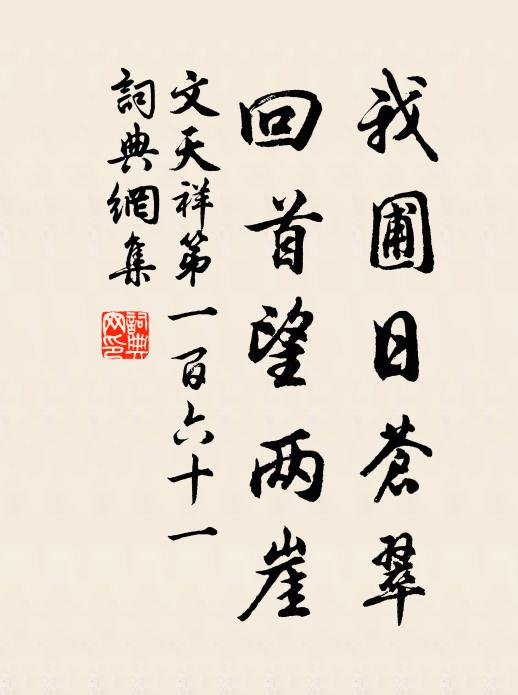 我圃日蒼翠
回首望两崖
文天祥第一百六十一
詞典網集
詞典網印